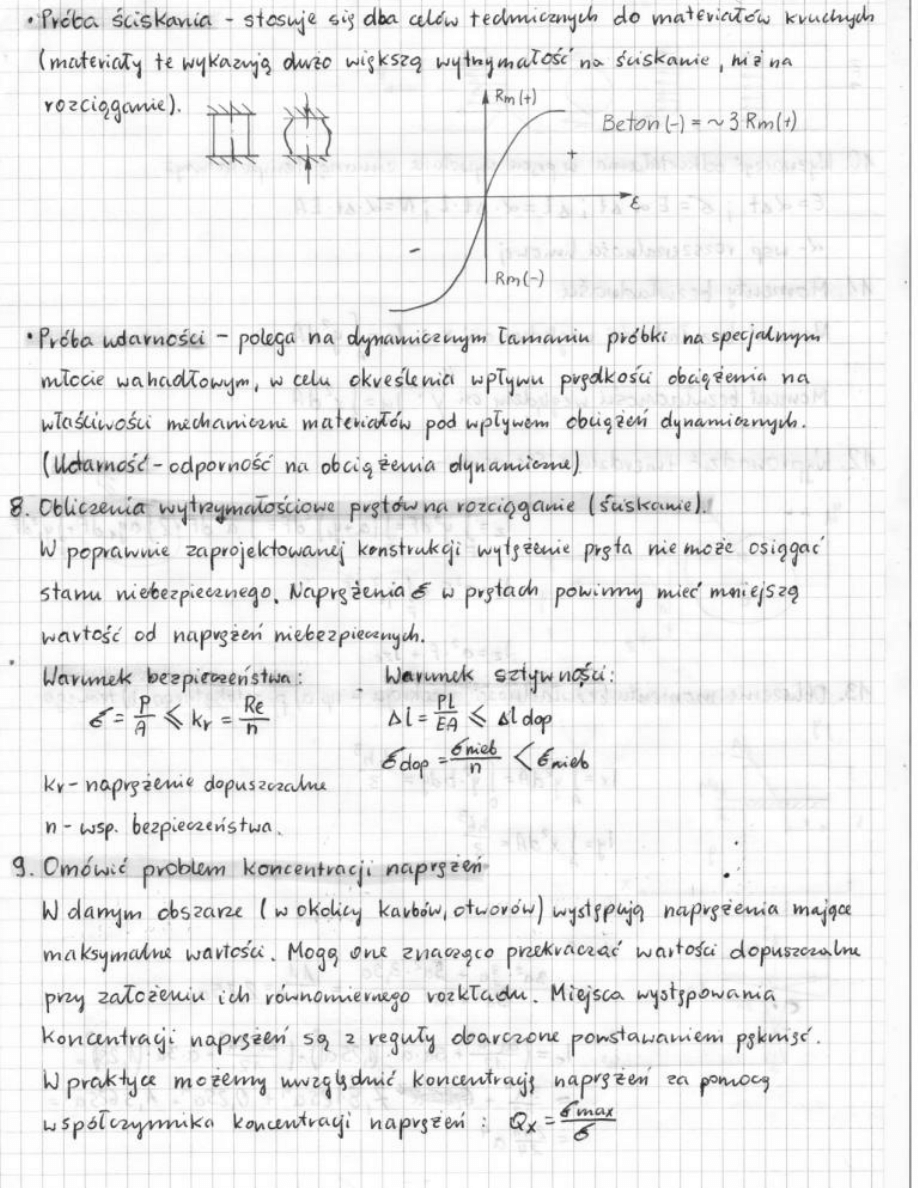 • Próba ściskania - stosuje się dba celów technicznych do materiałów kruchych
(materiały te wykazują dużo większą wytrzymałość na ściskanie, niż na
rozciąganie).
Rm(+)
Beton(-) = ~3 Rm(+)
+
ε
-
Rm(-)
• Próba udarności - polega na dynamicznym łamaniu próbki na specjalnym
młocie wahadłowym, w celu określenia wpływu prędkości obciążenia na
właściwości mechaniczne materiałów pod wpływem obciążeń dynamicznych.
(Udarność - odporność na obciążenia dynamiczne)
8. Obliczenia wytrzymałościowe prętów na rozciąganie (ściskanie).
W poprawnie zaprojektowanej konstrukcji wytężenie pręta nie może osiągać
stanu niebezpiecznego. Naprężenia σ w prętach powinny mieć mniejszą
wartość od naprężeń niebezpiecznych.
Warunek bezpieczeństwa: Warunek sztywności:
σ = P/A ≤ kr = Re/n Δl = Pl/EA ≤ Δl dop
σdop = σnieb/n < σnieb
kr - naprężenie dopuszczalne
n - wsp. bezpieczeństwa.
9. Omówić problem koncentracji naprężeń
W danym obszarze (w okolicy karbów, otworów) występują naprężenia mające
maksymalne wartości. Mogą one znacząco przekraczać wartości dopuszczalne
przy założeniu ich równomiernego rozkładu. Miejsca występowania
koncentracji naprężeń są z reguły obarczone powstawaniem pęknięć.
W praktyce możemy uwzględnić koncentrację naprężeń za pomocą
współczynnika koncentracji naprężeń: Qx = σmax/σ